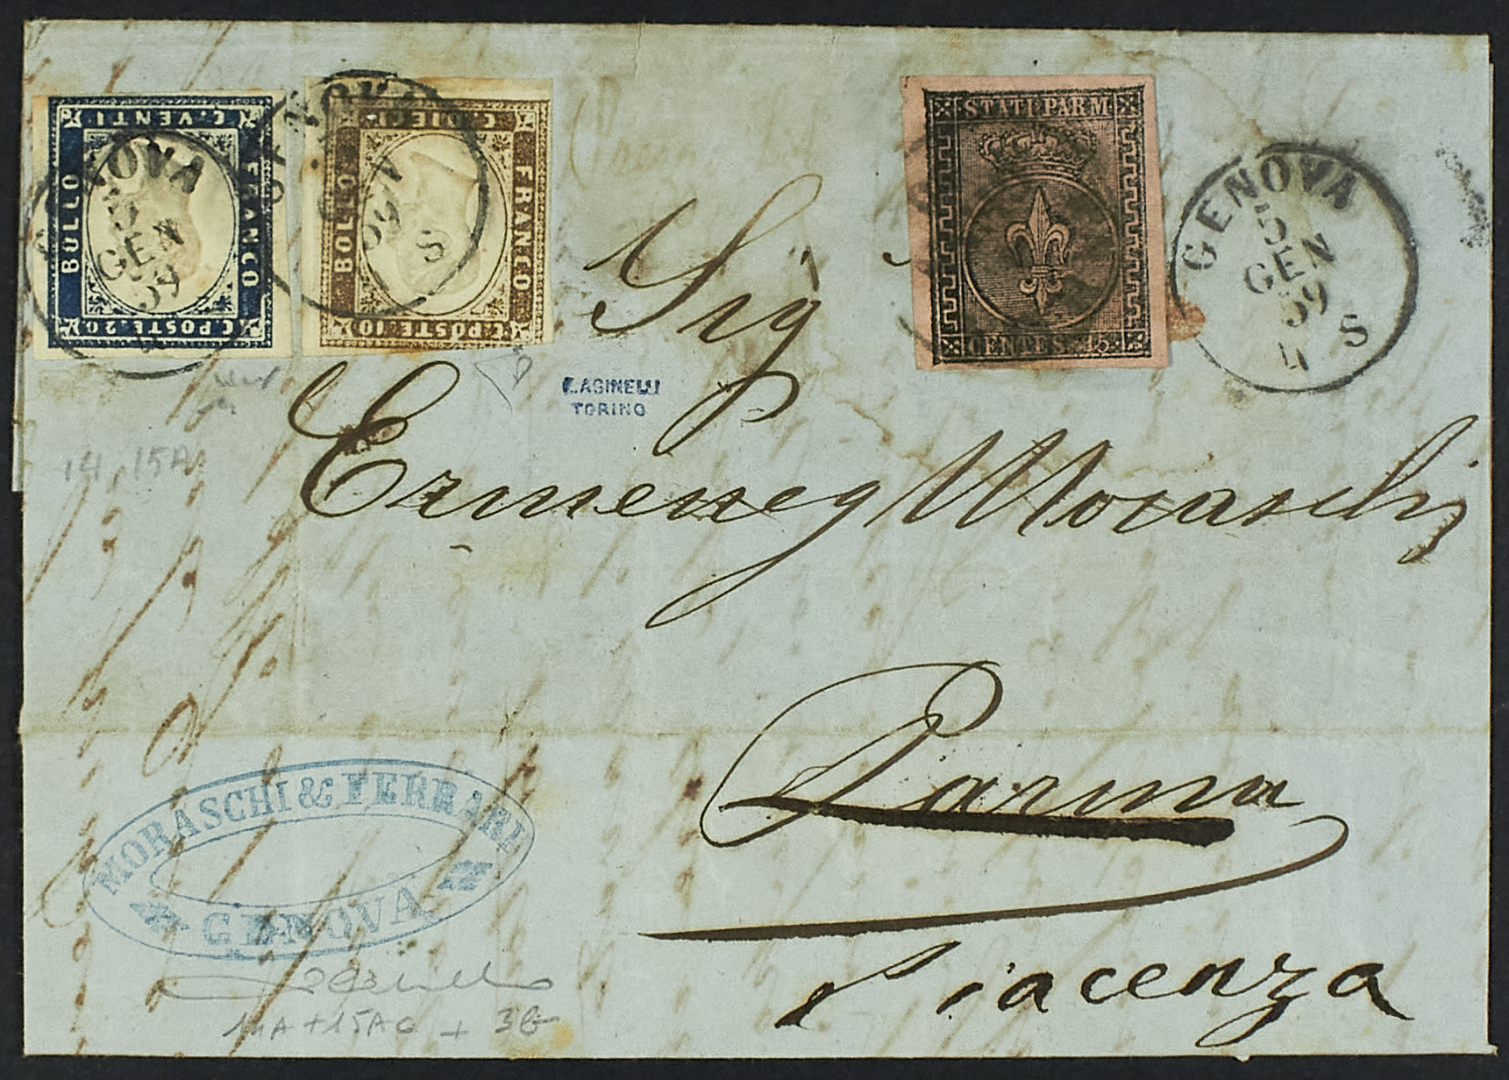 C. VENTI
BOLLO
FRANCO
C. POSTE. 20
GENOVA
5
GEN
59
C. DIECI
BOLLO
FRANCO
C. POSTE. 10
GENOVA
5
GEN
59
4 S
STATI PARM.
CENTES. 15
GENOVA
5
GEN
59
4 S
Sig
RAGINELLI
TORINO
14, 15A
Ermeneg Moraschi
Parma
Piacenza
MORASCHI & FERRARI
GENOVA
14A + 15AC + 3b